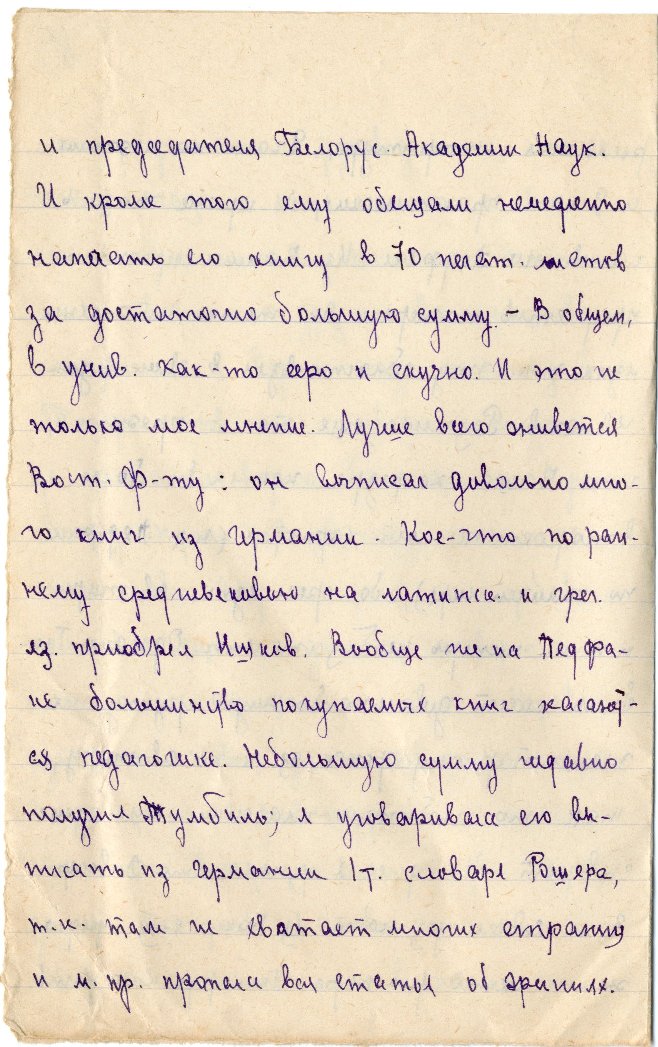 и председателя Белорус. Академии Наук.
И кроме того ему обещали немедленно
напечатать его книгу в 70 печат. листов
за достаточно большую сумму. – В общем,
в унив. как-то серо и скучно. И это не
только мое мнение. Лучше всего живется
Вост. Ф-ту: он выписал довольно мно-
го книг из Германии. Кое-что по ран-
нему средневековью на латинск. и греч.
яз. приобрел Ишков. Вообще же на Педфа-
ке большинство покупаемых книг касают-
ся педагогике. Небольшую сумму недавно
получил Тумбиль, я уговаривала его вы-
писать из Германии 1 т. словаря Рошера,
т.к. там не хватает многих страниц
и м. пр. пропала вся статья об эриниях.